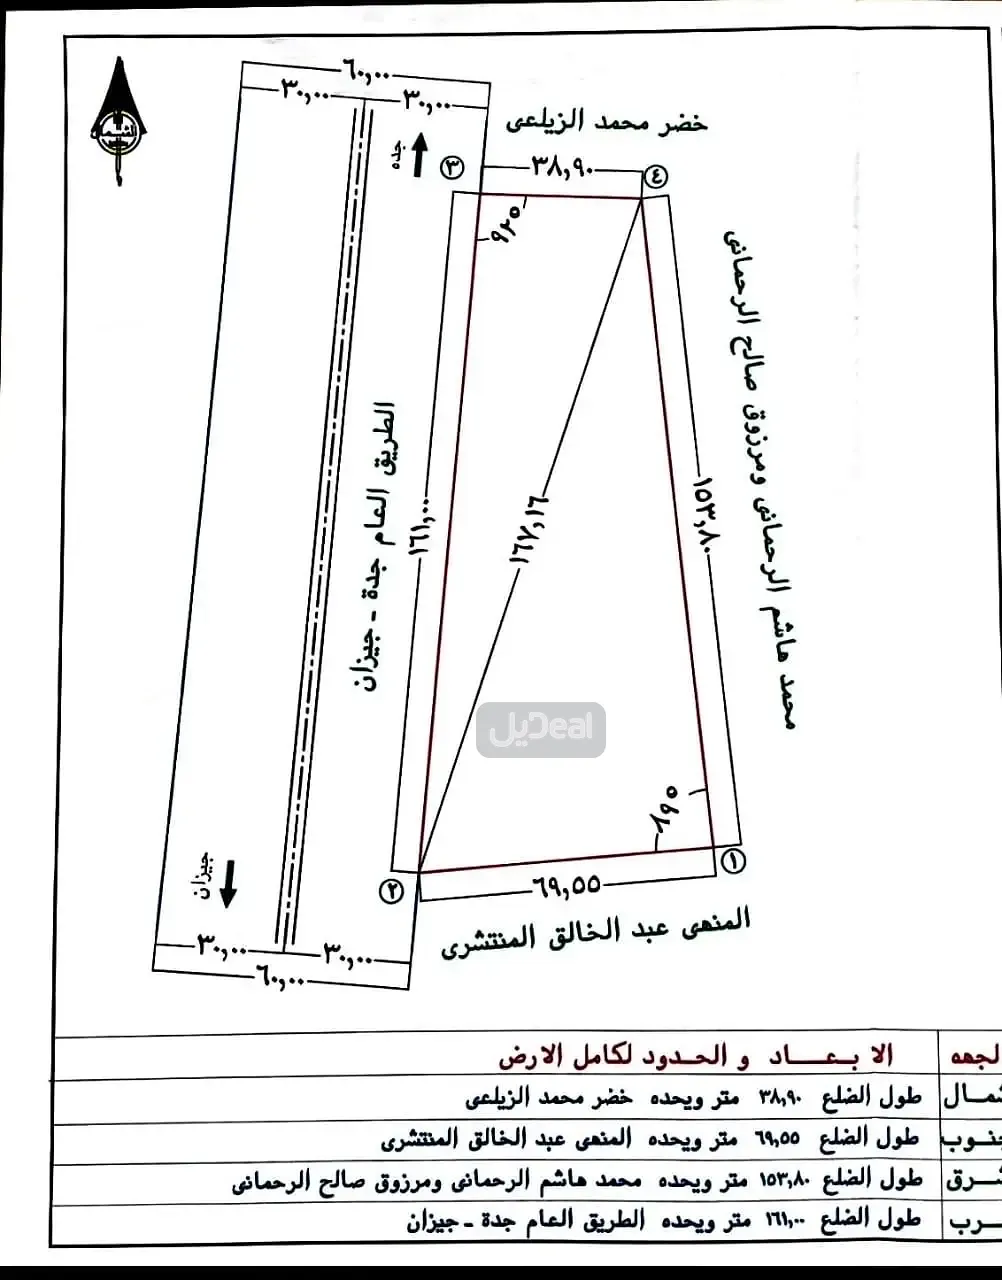 ٦٠,٠٠
٣٠,٠٠
٣٠,٠٠
الشمال
جده
خضر محمد الزيلعى
٣
٣٨,٩٠
٤
٩٢٥
محمد هاشم الرحمانى ومرزوق صالح الرحمانى
الطريق العام جدة - جيزان
١٦١,٠٠
١٦٧,١٦
١٥٣,٨٠
ديل Deal
٨٩٥
جيزان
٢
٦٩,٥٥
١
المنهى عبد الخالق المنتشرى
٣٠,٠٠
٣٠,٠٠
٦٠,٠٠
لجهه الابعاد و الحدود لكامل الارض
شمال طول الضلع ٣٨,٩٠ متر ويحده خضر محمد الزيلعى
نوب طول الضلع ٦٩,٥٥ متر ويحده المنهى عبد الخالق المنتشرى
شرق طول الضلع ١٥٣,٨٠ متر ويحده محمد هاشم الرحمانى ومرزوق صالح الرحمانى
رب طول الضلع ١٦١,٠٠ متر ويحده الطريق العام جدة - جيزان